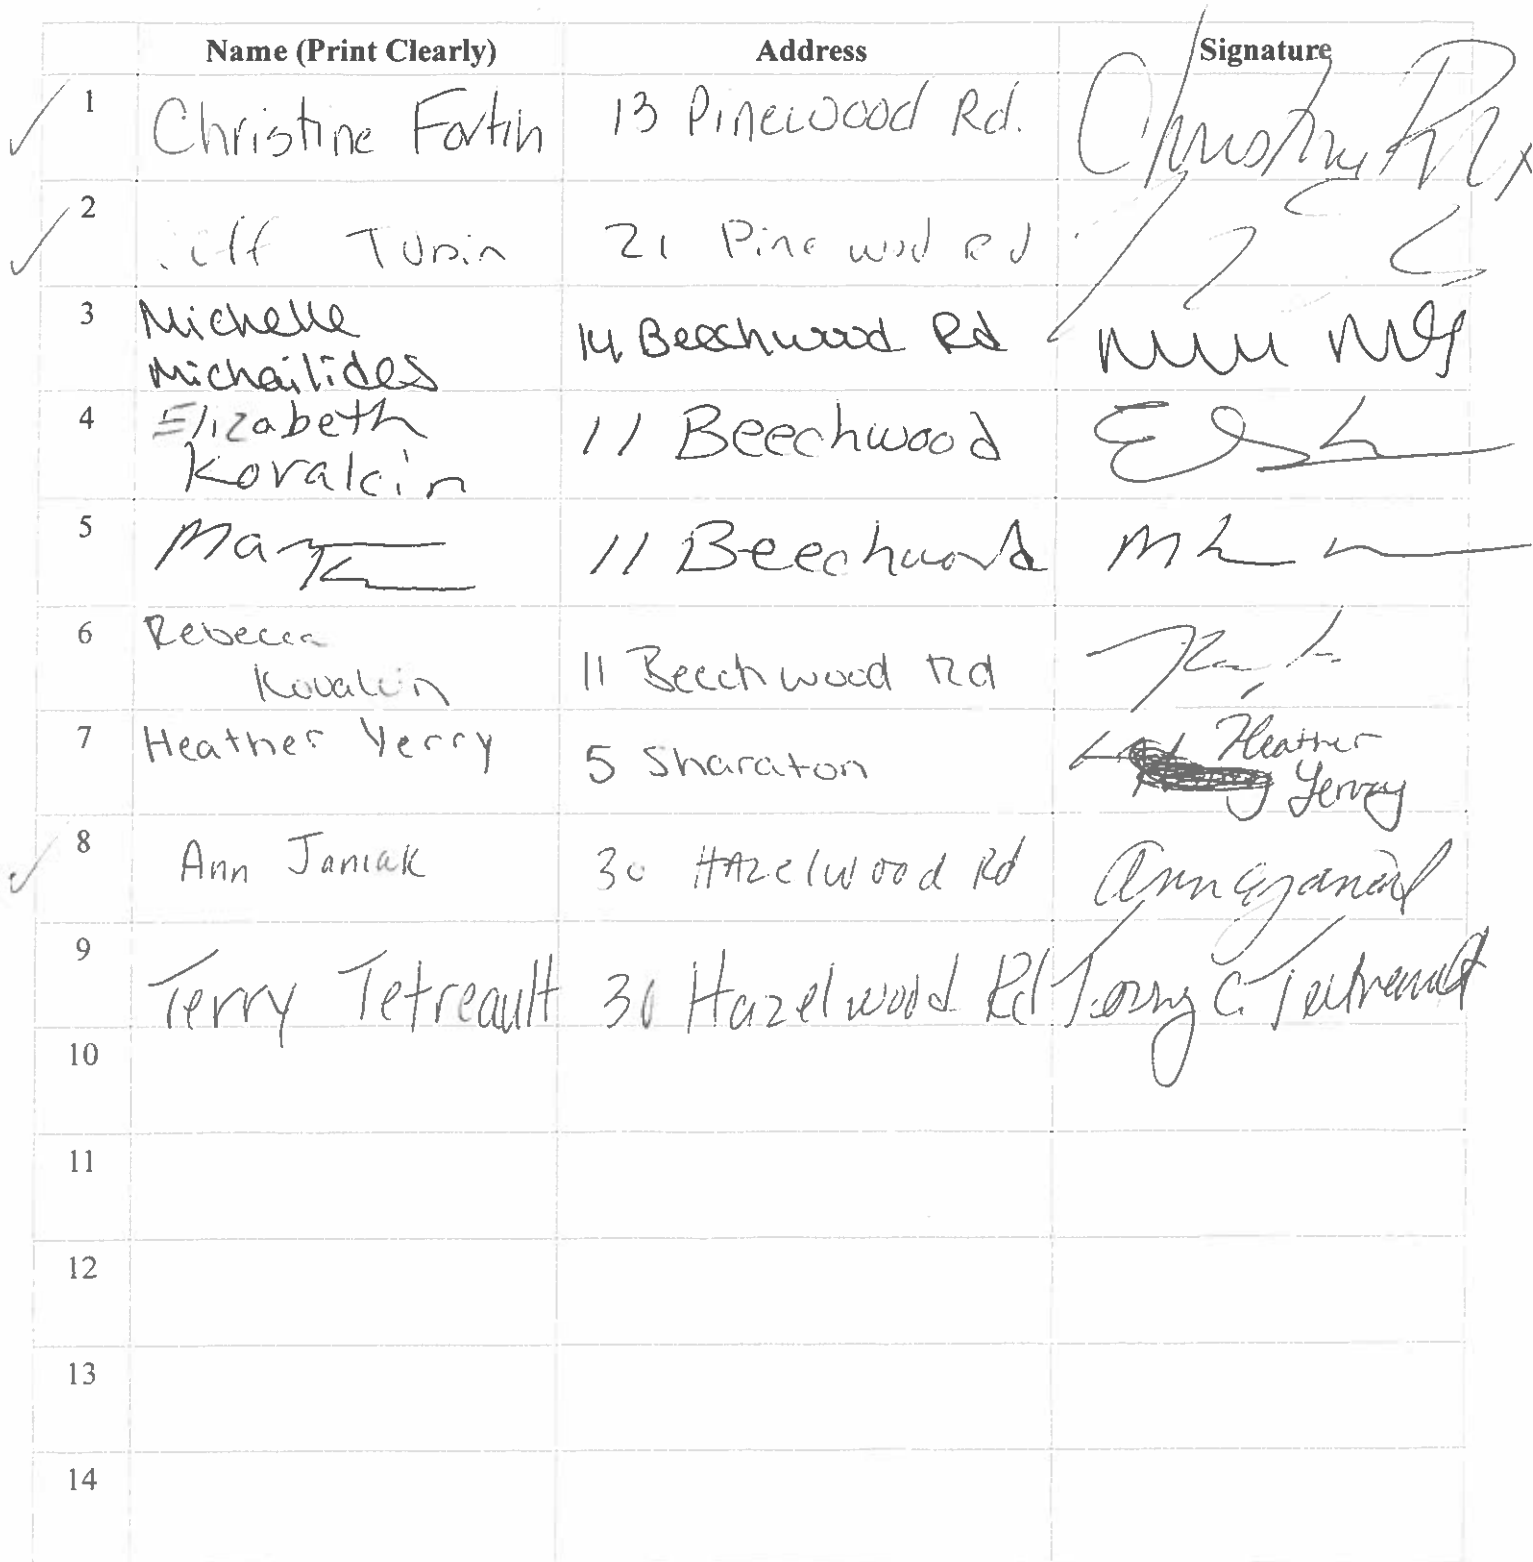 Name (Print Clearly) Address Signature
1 Christine Fortin 13 Pinewood Rd.
2 Turin 21 Pine wod Rd
3 Michelle
Michailides 14 Beechwood Rd
4 Elizabeth
Kovalcin 11 Beechwood
5 11 Beechwood
6 Rebecca
Kovalcin 11 Beechwood Rd
7 Heather Yerry 5 Sharaton Heather
Yerry
8 Ann Janiak 30 HAzelwood Rd
9 Terry Tetreault 30 Hazelwood Rd Terry C. Tetreault
10
11
12
13
14